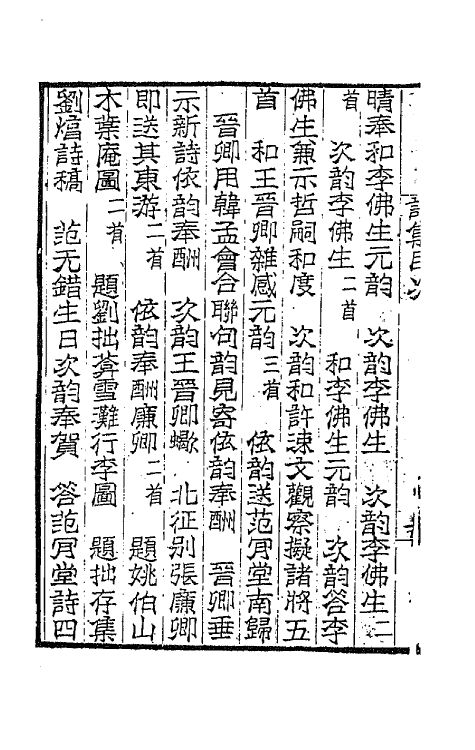 詩集目次
晴奉和李佛生元韵　次韵李佛生　次韵李佛生二
首　次韵李佛生二首　和李佛生元韵　次韵答李
佛生兼示哲嗣和度　次韵和許涑文觀察擬諸將五
首　和王晉卿雜感元韵三首　依韵送范肎堂南歸
晉卿用韓孟會合聯句韵見寄依韵奉酬　晉卿垂
示新詩依韵奉酬　次韵王晉卿蠍　北征别張廉卿
即送其東游二首　依韵奉酬廉卿二首　題姚伯山
木葉庵圖二首　題劉拙葊雪灘行李圖　題拙存集
劉熺詩稿　范无錯生日次韵奉賀　答范肎堂詩四